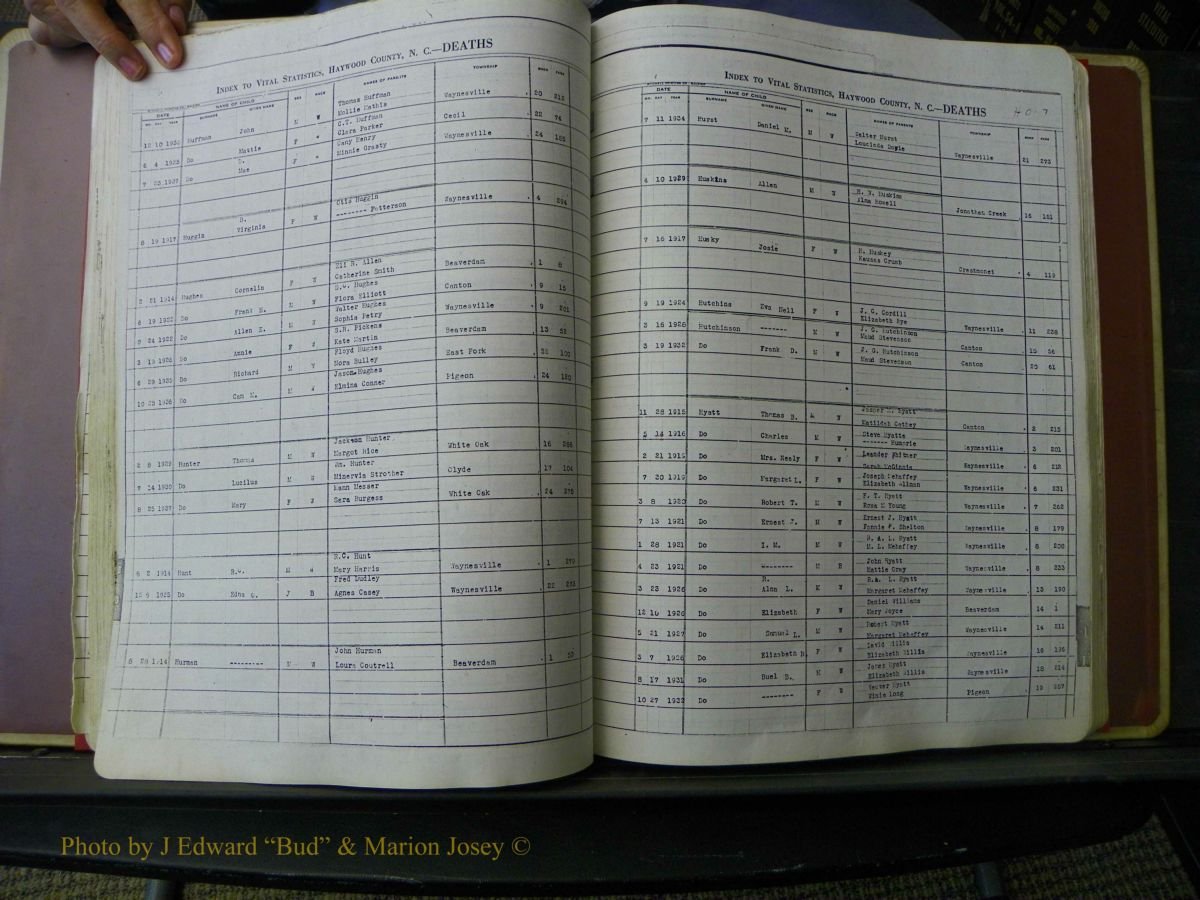 INDEX TO VITAL STATISTICS, HAYWOOD COUNTY, N. C.—DEATHS
DATE NAME OF CHILD SEX RACE NAMES OF PARENTS TOWNSHIP BOOK PAGE
MO. DAY YEAR SURNAME GIVEN NAME
12 10 1932 Huffman John M W Thomas Huffman Waynesville 20 212
Mollie Mathis
6 4 1935 Do Mattie F C.T. Huffman Cecil 22 74
Clara Parker
7 23 1937 Do D. Mae F Cany Henry Waynesville 24 185
Minnie Grasty
8 19 1917 Huggin B. Virginia F W Otis Huggin Waynesville 4 294
-------- Patterson
2 21 1914 Hughes Cornelia F W Eli R. Allen Beaverdam 1 8
Catherine Smith
6 19 1922 Do Frank M. M W S.W. Hughes Canton 9 15
Flora Elliott
8 24 1922 Do Allen Z. M W Walter Hughes Waynesville 9 201
Sophia Petry
3 19 1926 Do Annie F W S.R. Pickens Beaverdam 13 52
Kate Martin
6 29 1935 Do Richard M W Floyd Hughes East Fork 22 100
Nora Sulley
10 25 1936 Do Cam M. M W Jason Hughes Pigeon 24 120
Elmina Conner
2 8 1929 Hunter Thomas M W Jackson Hunter White Oak 16 266
Margot Rice
7 14 1930 Do Lucilus M W Wm. Hunter Clyde 17 104
Minervia Strother
8 25 1937 Do Mary F W Kann Messer White Oak 24 275
Sera Burgess
6 2 1914 Hunt R.C. M W R.C. Hunt Waynesville 1 279
Mary Harris
12 9 1935 Do Edna J B Fred Dudley Waynesville 22 273
Agnes Casey
8 28 1914 Hurman --------- M W John Hurman Beaverdam 1 53
Loura Coutrell
INDEX TO VITAL STATISTICS, HAYWOOD COUNTY, N. C.—DEATHS 407
DATE NAME OF CHILD SEX RACE NAMES OF PARENTS TOWNSHIP BOOK PAGE
MO. DAY YEAR SURNAME GIVEN NAME
7 11 1934 Hurst Daniel M. M W Walter Hurst Waynesville 21 273
Loucinda Doyle
4 10 1929 Huskins Allen M W R. W. Huskins Jonathan Creek 16 161
Alma Howell
7 16 1917 Husky Josie F W H. Huskey Crestmonet 4 119
Kansas Crumb
9 19 1924 Hutchins Eva Nell F W J. G. Gordill Waynesville 11 238
Elizabeth Nye
3 16 1926 Hutchinson ------- M W J. G. Hutchinson Canton 15 56
Maud Stevenson
3 19 1932 Do Frank D. M W J. G. Hutchinson Canton 20 61
Maud Stevenson
11 28 1915 Hyatt Thomas B. M W Jasper Hyatt Canton 2 215
Katildah Cathey
5 14 1916 Do Charles M W Steve Hyatte Waynesville 3 201
------- Humprie
2 21 1919 Do Mrs. Nealy F W Leander Whitner Waynesville 6 212
Sarah McGinnis
7 20 1919 Do Margaret L. F W Joseph Mehaffey Waynesville 6 231
Elizabeth Allman
3 8 1920 Do Robert T. M W F. T. Hyatt Waynesville 7 262
Rosa M Young
7 13 1921 Do Ernest J. M W Ernest J. Hyatt Waynesville 8 179
Fannie F. Shelton
1 28 1921 Do I. M. M W B. A. L. Hyatt Waynesville 8 208
M. L. Mehaffey
4 23 1921 Do -------- M B John Hyatt Waynesville 8 233
Mattie Gray
3 23 1926 Do R. Alna L. M W R.A. L. Hyatt Waynesville 13 190
Margaret Mehaffey
12 10 1926 Do Elizabeth F W Daniel Williams Beaverdam 14 1
Mary Joyce
5 21 1927 Do Samuel L. M W Robert Hyatt Waynesville 14 211
Margaret Mehaffey
3 7 1928 Do Elizabeth H. F W David Willis Waynesville 16 196
Elizabeth Willis
8 17 1931 Do Buel B. M W Jones Hyatt Waynesville 18 214
Elizabeth Willis
10 27 1932 Do -------- F W Weaver Hyatt Pigeon 19 357
Vinie Long
Photo by J Edward “Bud” & Marion Josey ©